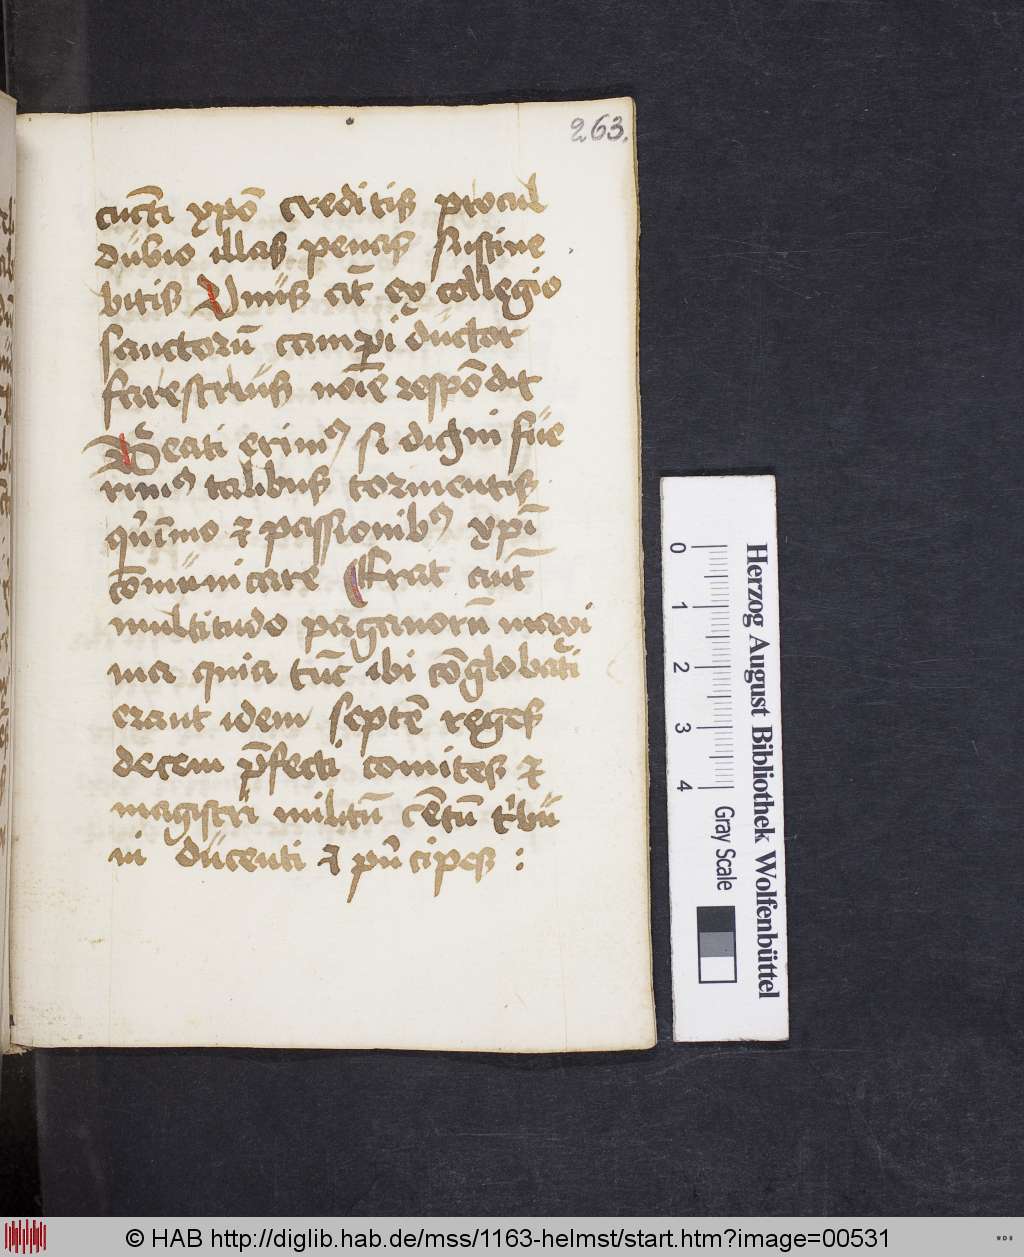 263.
cūcti xpō creditis procul
dubio illas penas sustine
bitis Unus cit ex collegio
sanctorū campi ductor
farestrius noīe respōdit
Beati erimꝰ si digni fue
rimꝰ talibus tormentis
⁊ passionibꝰ xpī
cōmunicare Erat aut̄
multitudo paganorū maxi
ma quia tūc ibi cōglobati
erant idem septē reges
decem p̄fecti comites ⁊
magistri militū cētū tribu
ni ducenti ⁊ pͥncipes :
0
1
2
3
4
Gray Scale
Herzog August Bibliothek Wolfenbüttel
© HAB http://diglib.hab.de/mss/1163-helmst/start.htm?image=00531